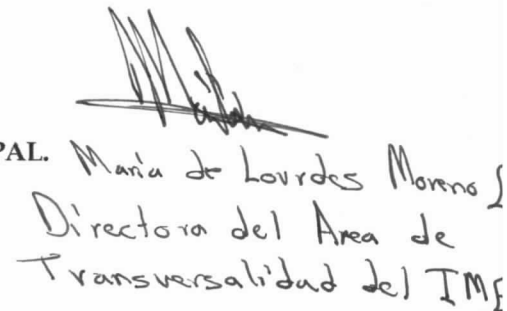 PAL. María de Lourdes Moreno
Directora del Area de
Transversalidad del IM